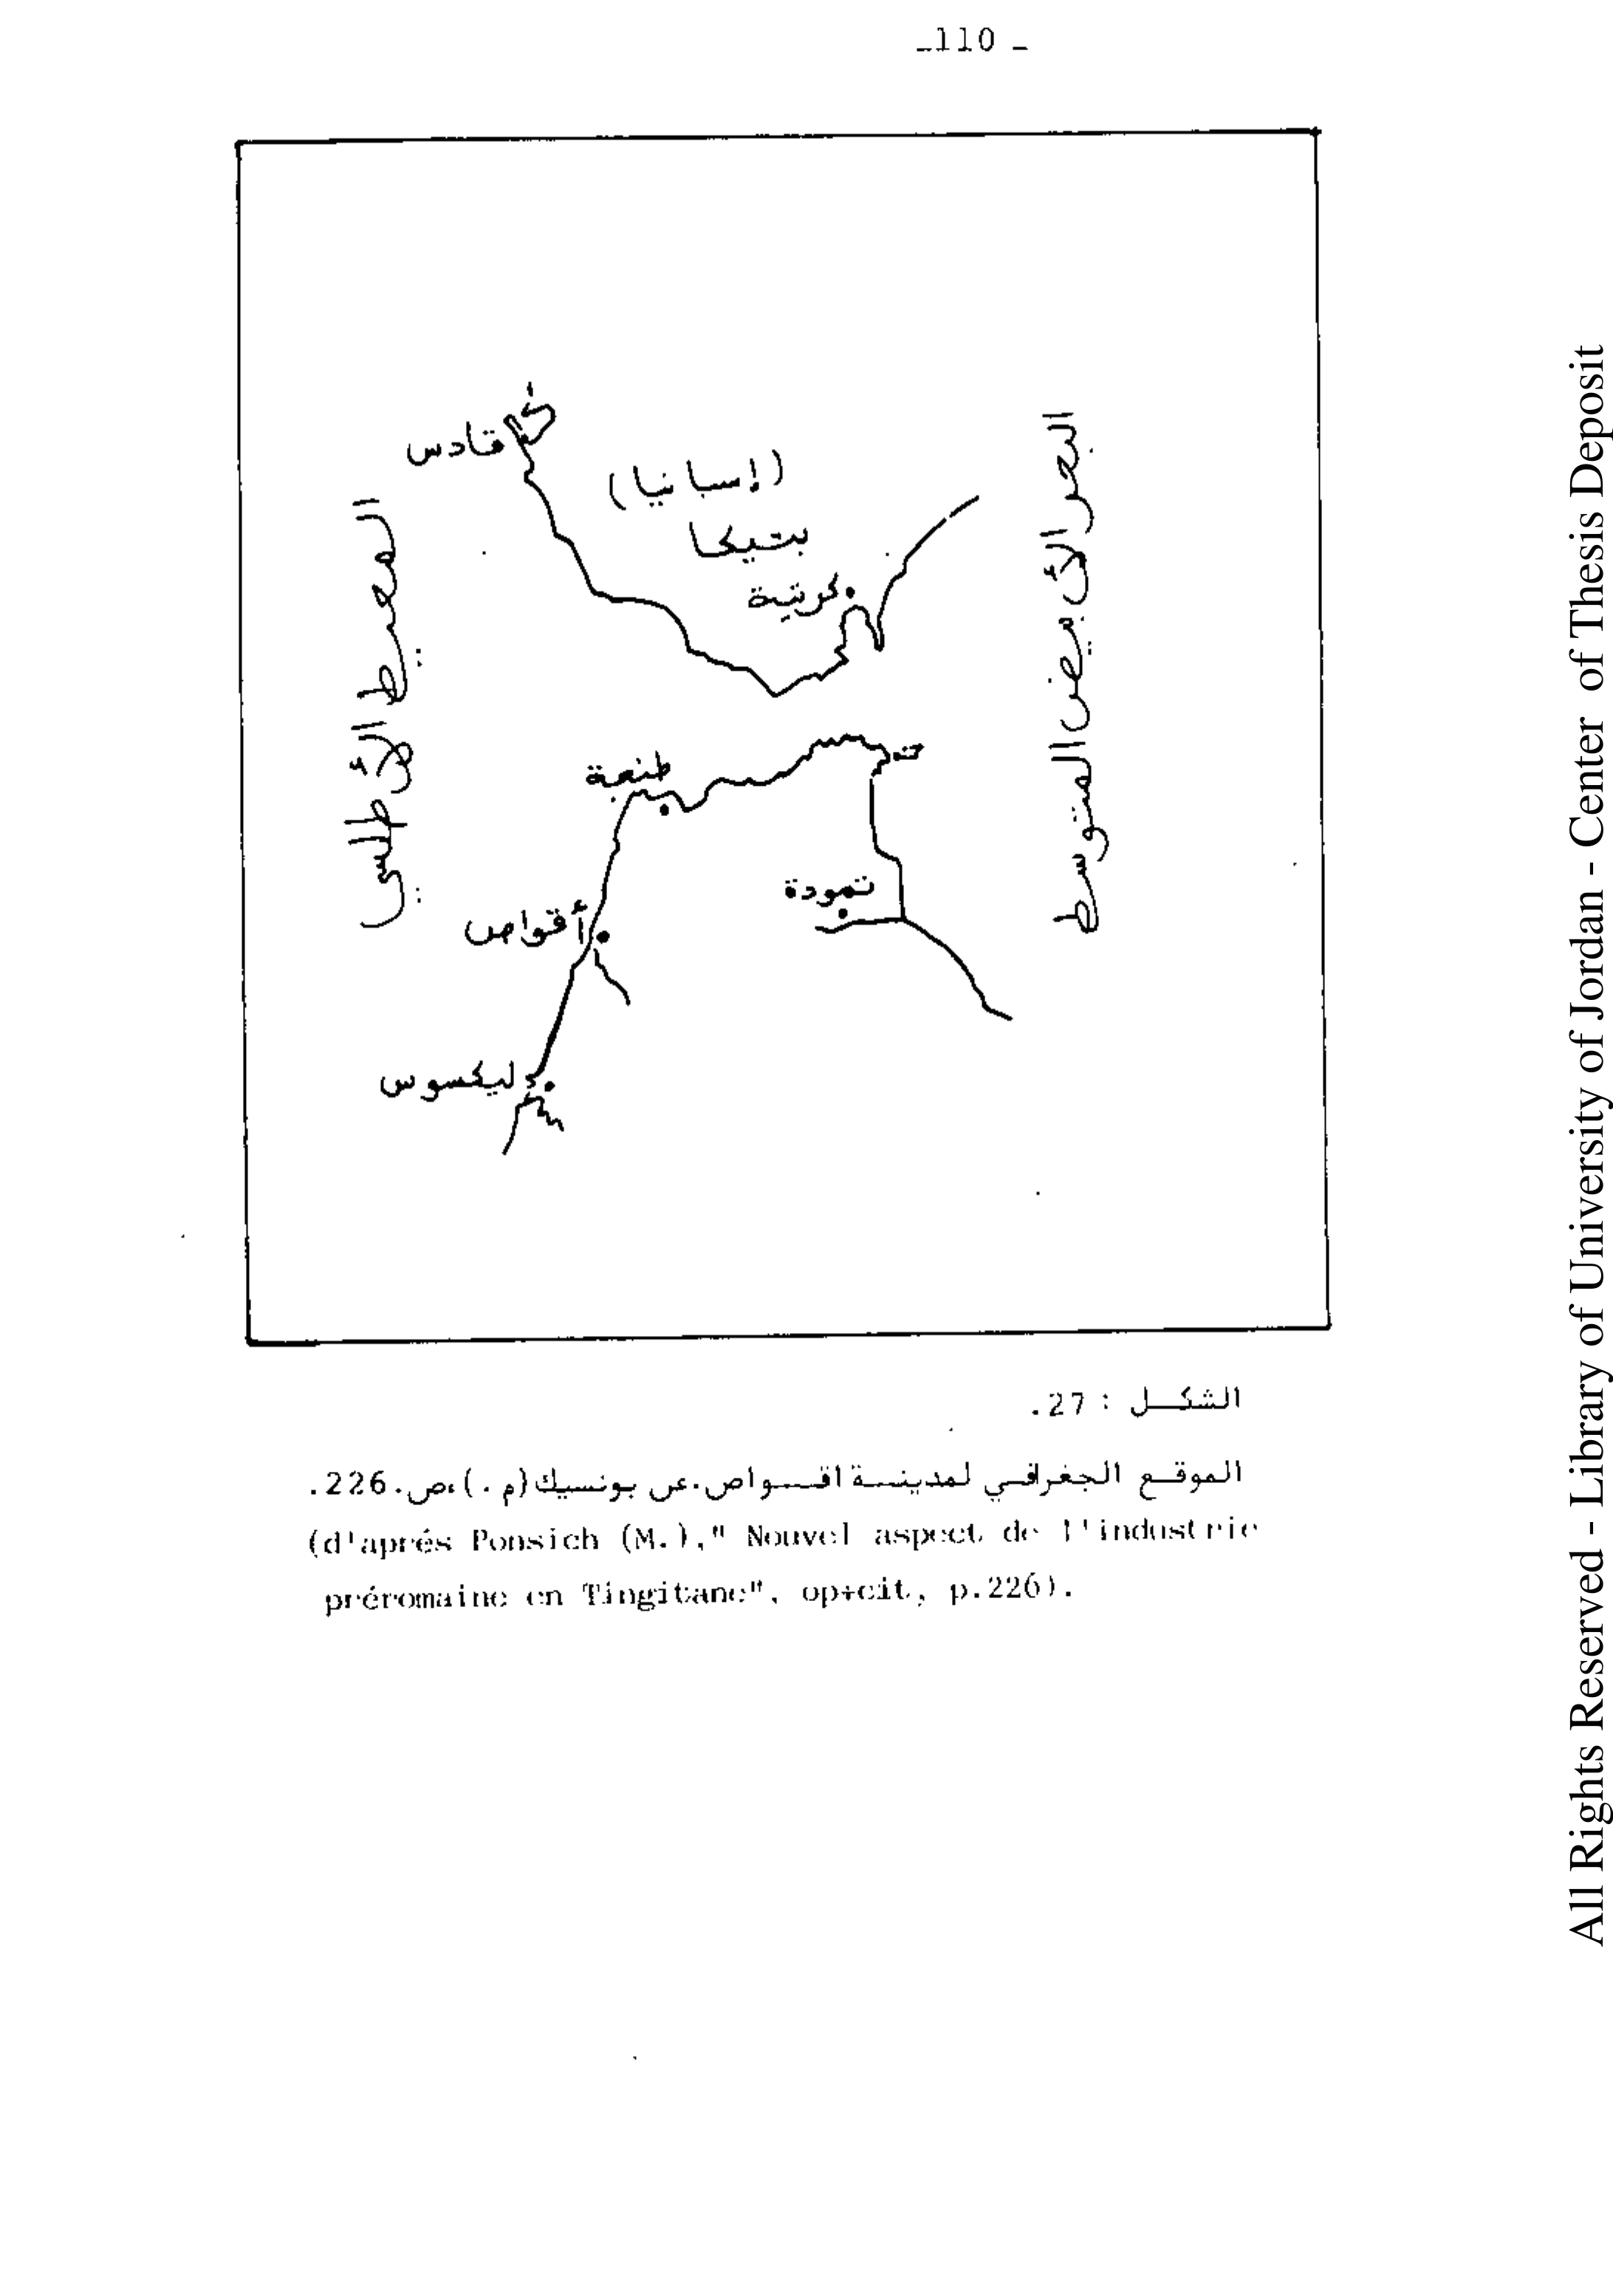 _110 _
قادس
(إسبانيا)
بتيكا
كرتية
البحر الأبيض المتوسط
المحيط الأطلسي
طنجة
تمودة
أقواص
ليكسوس
الشكـل : 27.
الموقـع الجغرافـي لمدينـة اقـواص.عن بونسيك(م .)،ص.226.
(d'aprés Ponsich (M.)," Nouvel aspect de l'industrie
préromaine en Tingitane", op+cit, p.226).
All Rights Reserved - Library of University of Jordan - Center of Thesis Deposit